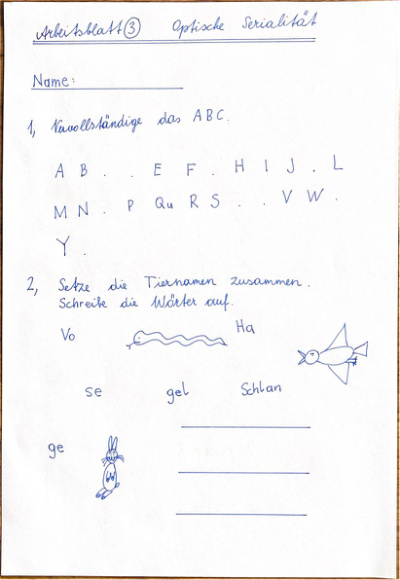 Arbeitsblatt 3 Optische Serialität
Name:
1, Vervollständige das ABC.
A B . . E F . H I J . L
M N . P Qu R S . . V W .
Y .
2, Setze die Tiernamen zusammen.
Schreibe die Wörter auf.
Vo Ha
se gel Schlan
ge